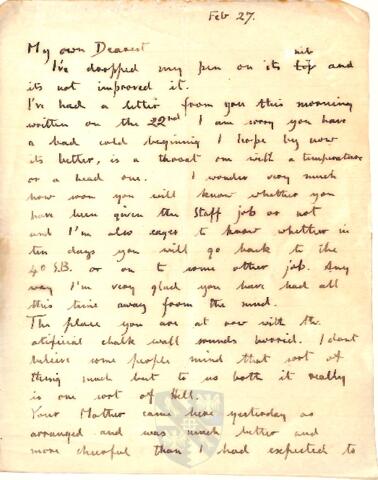 Feb 27.
My own Dearest
I've dropped my pen on its nib and
its not improved it.
I've had a letter from you this morning
written on the 22nd I am sorry you have
a bad cold beginning I hope by now
its better, is a throat one with a temperature
or a head one. I wonder very much
how soon you will know whether you
have been given this Staff job or not
and I'm also eager to know whether in
ten days you will go back to the
40 S.B. or on to some other job. Any
way I'm very glad you have had all
this time away from the mud.
The place you are at now with the
atificial chalk wall sounds horrid. I dont
believe some people mind that sort of
thing much but to us both it really
is one sort of Hell.
Your Mother came here yesterday as
arranged and was much better and
more cheerful than I had expected to